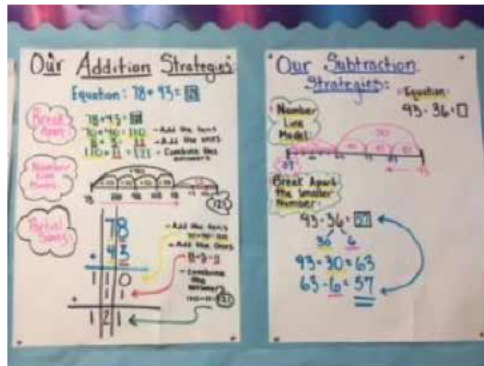 Our Addition Strategies:
Equation: 78 + 43 = 121
Break Apart
78 + 43 = 121
70 + 40 = 110 - Add the tens
8 + 3 = 11 - Add the ones
110 + 11 = 121 - Combine the answers
Number Line Model
78
121
Partial Sums
78
+ 43
110
+ 11
121
- Add the tens
- Add the ones
8+3=11
- Combine the answers
Our Subtraction Strategies:
Equation:
93 - 36 = □
Number Line Model:
57
93
Break Apart the Smaller Number:
93 - 36 = 57
30 6
93 - 30 = 63
63 - 6 = 57